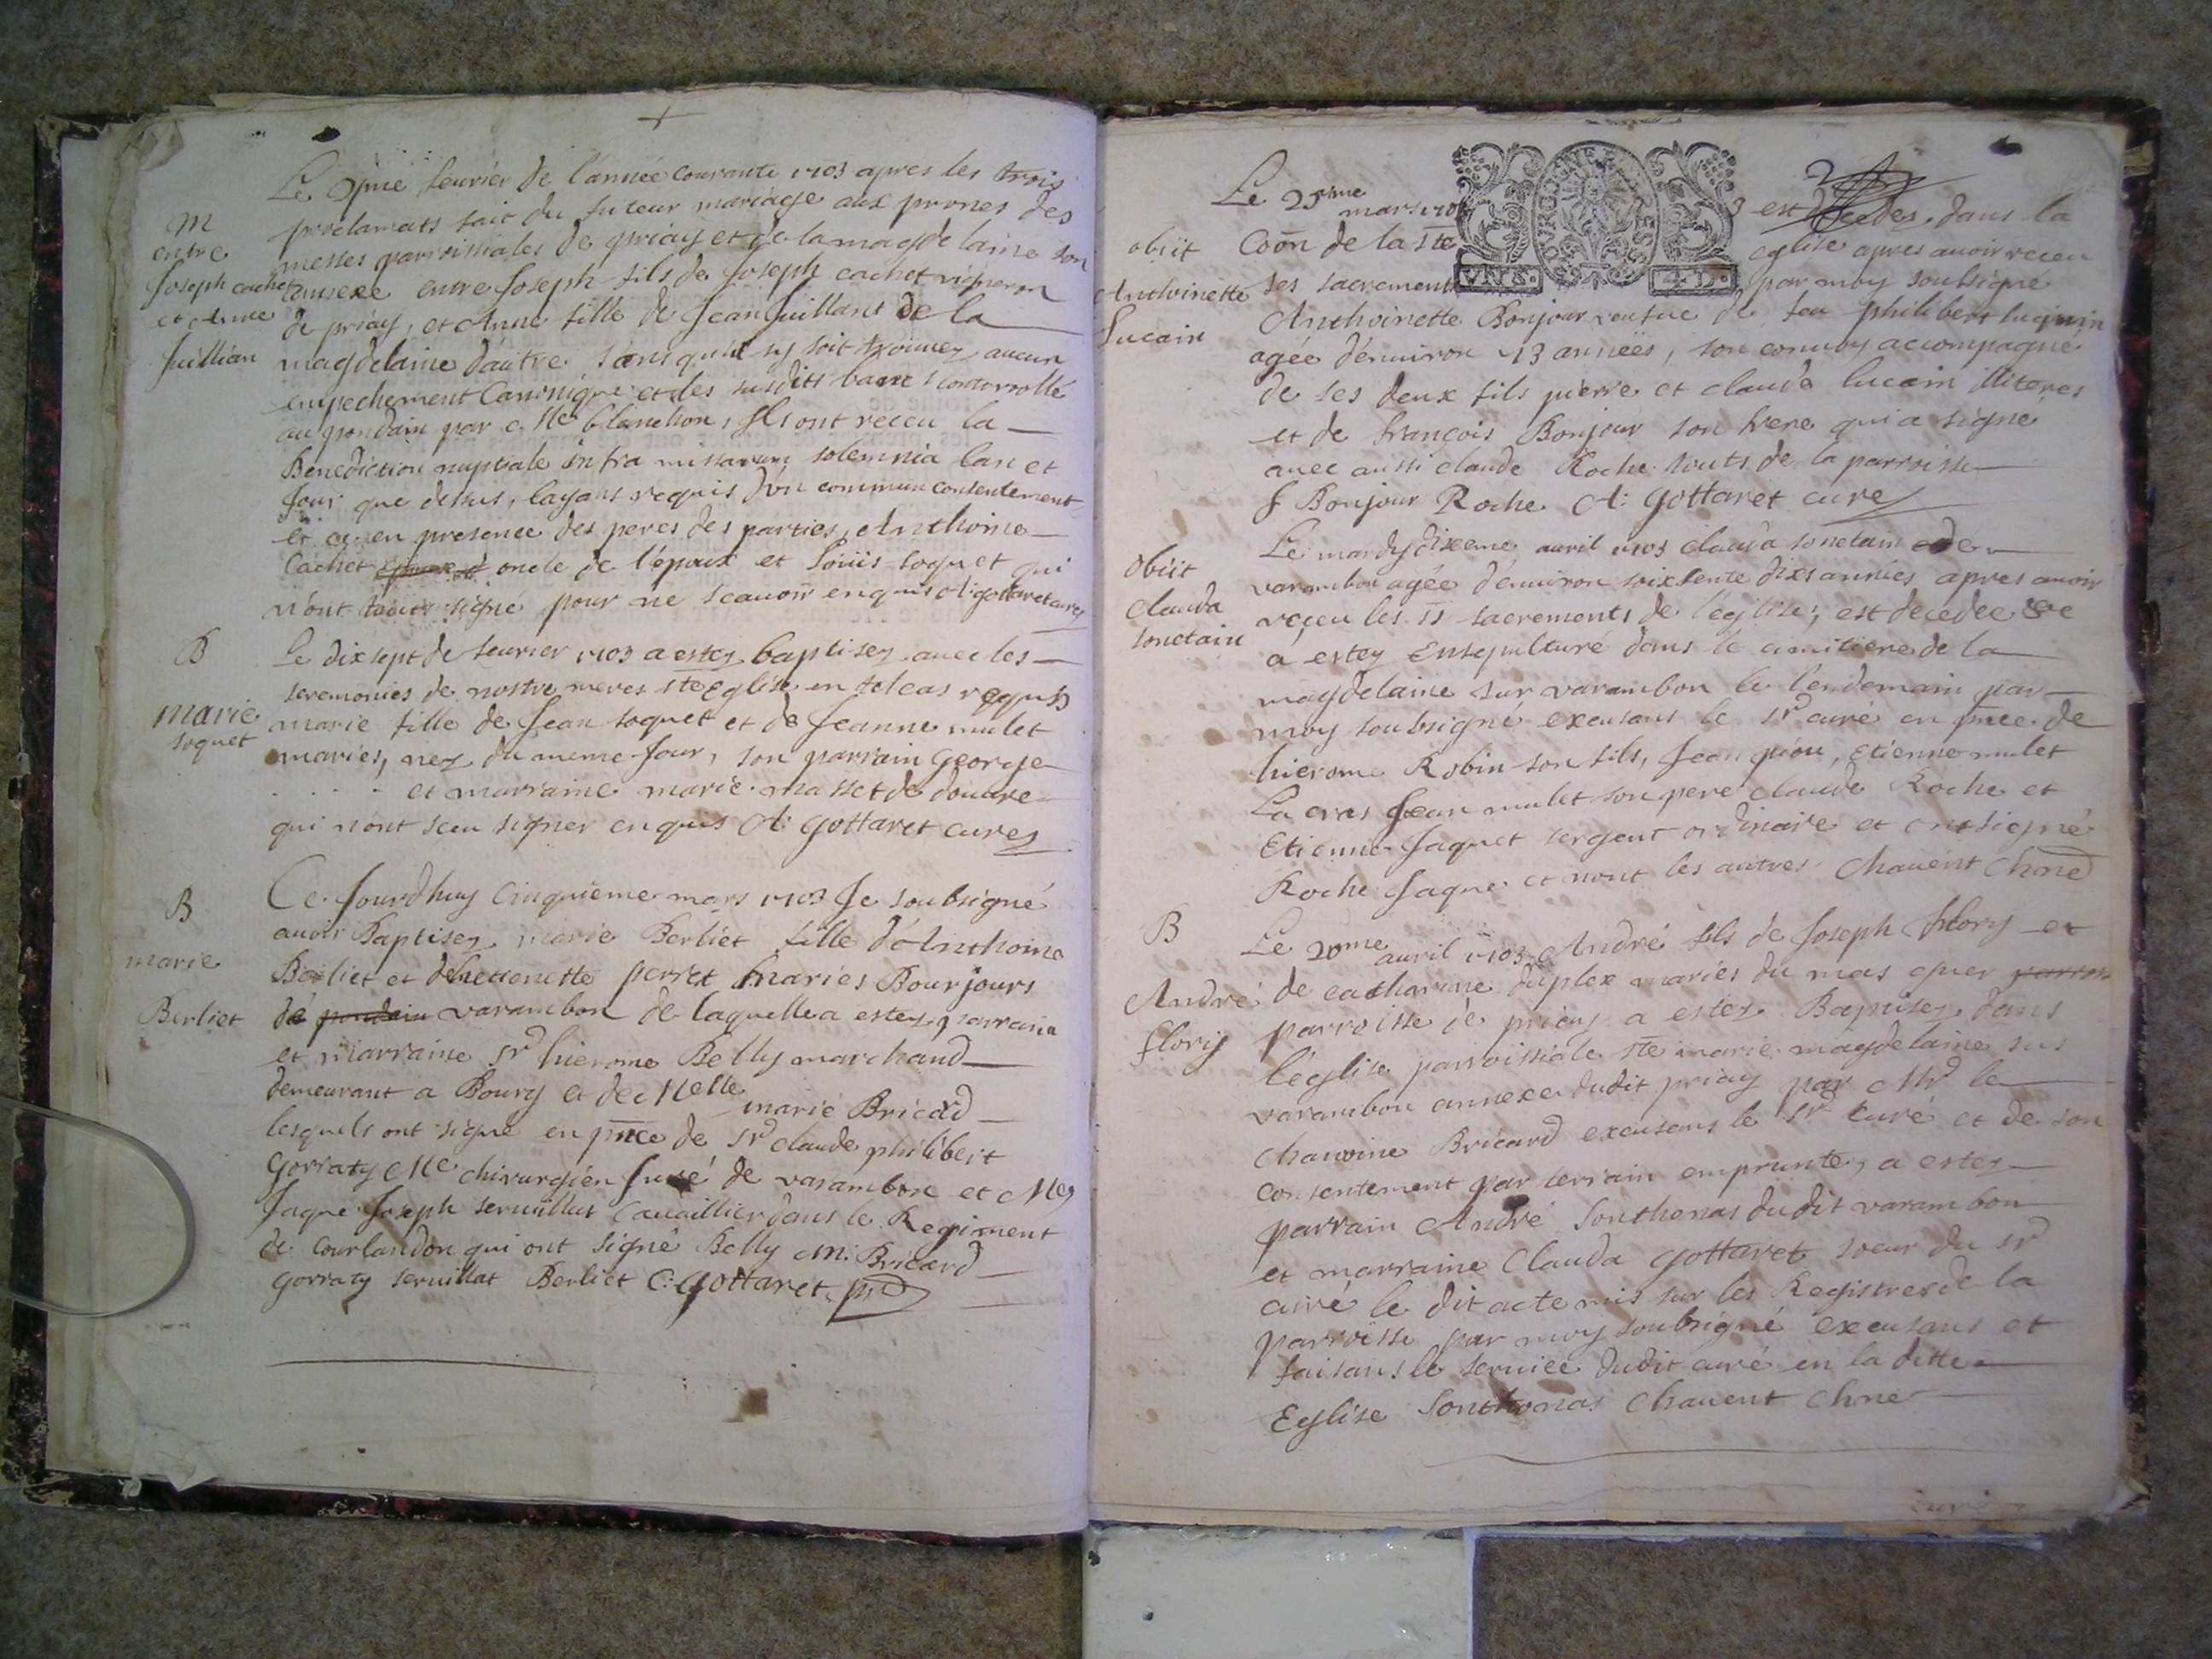 M
entre
Joseph cachet
et Anne
Juillian
Le 9me feurier de l'année courante 1703 apres les trois
proclamats fait du futeur mariage aux prones des
messes parroissiales de priay et de la magdelaine son
annexe entre Joseph fils de Joseph cachet vigneron
de priay, et Anne fille de Jean Juillant de la
magdelaine d'autre sans qu'il sy soit trouuez aucun
empechement Canonique et les susdits bans controrollé
au pondain par Me blanchon, Ils ont receu la
Benediction nuptiale infra missarum solemnia lan et
Jour que dessus, layans requis d'vn commun consentement
et ce en presence des peres des parties, Anthoine
Cachet oncle de l'époux et Loüis soquet qui
n'ont signé pour ne scauoir enquis A: gottaret curez
B
marie
soquet
Le dixsept de feurier 1703 a estez baptisez auec les
seremonies de nostre meres ste Eglise en tel cas requis
marie fille de Jean soquet et de Jeanne mulet
mariés, nez du meme Jour, son parrain George
et marraine marie masset de douure
qui n'ont sceu signer enquis A: gottaret curez
B
marie
Berliet
Ce Jourdhuy Cinquieme mars 1703 Je soubsigné
auoir Baptisez marie Berliet fille d'Anthoine
Berliet et perret mariés Bourjours
de pondain varambon de laquelle a estez parrain
et marraine Sr hierome Belly marchand
demeurant a Bourg et de Melle marie Bricard
lesquels ont signe en pnce de Sr claude philibert
Gorraty Me chirurgien Juré de varambon et Mes
Jaque Joseph seruillat Cauaillier dans le Regiment
de Courlandon qui ont signé Belly M: Bricard
gorraty seruillat Berliet C: gottaret
obiit
Anthoinette
lucain
Le 25eme mars 170 3 est decedez dans la
Coon de la ste eglise apres auoir receu
ses sacrements par moy soubsigné
Anthoinette Bonjour veufue de feu philibert luquin
agée d'enuiron 73 années, son conuoy accompagné
de ses deux fils pierre et claude lucain illiteres
et de françois Bonjour son frere qui a signé
auec aussi claude Roche touts de la parroisse
f Bonjour Roche A: gottaret curez
obiit
Clauda
sonetain
Le mardy dixeme auril 1703 clauda sonetain de
varambon agée d'enuiron soixsente dix années apres auoir
reçeu les ss sacrements de l'eglise, est decedee &e
a estez Ensepulturé dans le cimitiere de la
magdelaine sur varambon le lendemain par
moy soubsigné exeusans le Sr curé en pnce de
hierome Robin son fils, Jean piou, Etienne mulet
La cras Jean mulet son pere claude Roche et
Etienne Jaquet sergent ordinaire et ont signé
Roche Jaque et nont les autres Chauent Chne
B
André
floris
Le 20me auril 1703 André fils de Joseph flory et
de catharine duplex mariés du mas quer
parroisse de priay a estez Baptisez dans
l'église parroissiale ste marie magdelaine sus
varambon annexe dudit priay par Mr le
chanoine Bricard exeusans le Sr Curé et de son
consentement par terrain emprunte, a estez
parrain André Sonthonas dudit varambon
et marraine Clauda gottaret soeur du Sr
curé le dit acte mis sur les Registres de la
parroisse par moy soubsigné exeusans et
faisans le seruice dudit curé en la ditte
Eglise Sonthonas Chauent Chne